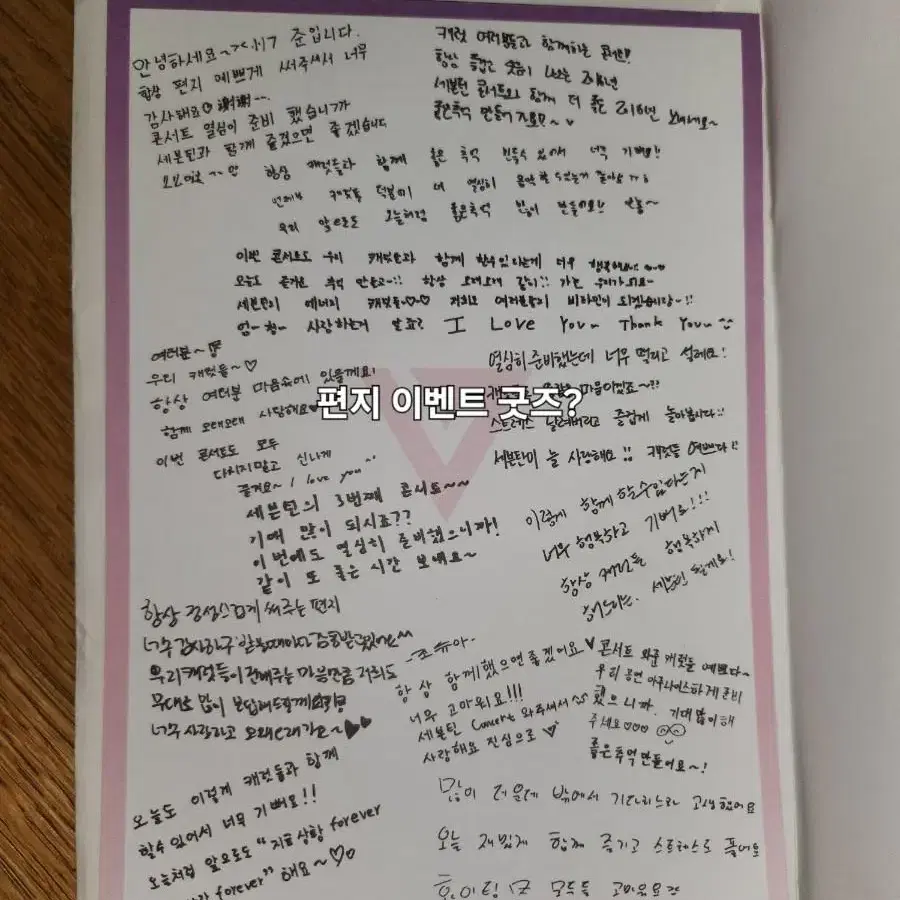 안녕하세요~><.!!7 준입니다.
항상 편지 예쁘게 써주셔서 너무
감사해요 謝謝~~.
콘서트 열심히 준비 했습니다
세븐틴과 함께 즐겼으면 좋겠습니다
캐럿 여러분들과 함께하는
항상 웃는 2016년
세븐틴 콘서트와 함께 더 좋은 2016년 보내세요~
좋은추억 만들어
항상 캐럿들과 함께 좋은 추억 만들수 있어서 너무 기뻐요!
언제나 캐럿들 덕분에 열심히 음악할 수 있는거
우리 앞으로도 오늘처럼 좋은추억 많이 만들어요!!
이번 콘서트도 우리 캐럿들과 함께 할수있다는게 너무 행복해요!!
오늘도 즐거운 추억 만들고~!! 항상 오래오래 같이!! 가는 우리가되요~
세븐틴의 에너지 캐럿들~♡♡ 저희도 여러분들의 비타민이 되겠습니당~!!
엄~청~ 사랑하는거 알죠? I Love You~ Thank You~
여러분~
우리 캐럿들~♡
항상 여러분 마음속에 있을게요!
함께 오래오래 사랑해요
이번 콘서트도 모두
다치지말고 신나게
즐겨요~ I love you
열심히 준비했는데 너무 떨리고 설레요!
마음이겠죠~??
스트레스 날려버리고 즐겁게 놀아봅시다!!
세븐틴이 늘 사랑해요!! 캐럿들 예쁘다!!
편지 이벤트 굿즈?
세븐틴의 3번째 콘서트~~
기대 많이 되시죠??
이번에도 열심히 준비했으니까!
같이 또 좋은 시간 보내요~
이렇게 함께 할수있다는지
너무 행복하고 기뻐요!!!
항상 캐럿들 행복하게
해드리는. 세븐틴 될게요!
항상 정성스럽게 써주는 편지
너무 감사하구 받을때마다 감동받고있어요~
우리캐럿들이 전해주는 마음만큼 저희도
무대로 많이 보답해드릴게요
너무 사랑하고 오래오래가요~♥♥
-조슈아-
항상 함께했으면 좋겠어요♥
너무 고마워요!!!
세븐틴 Concert 와주셔서
사랑해요 진심으로♡
콘서트 와준 캐럿들 예쁘다~
우리 공연 아주나이스하게 준비
했으니까. 기대많이해
주세요♡♡♡
좋은추억만들어요~!
오늘도 이렇게 캐럿들과 함께
할수있어서 너무 기뻐요!!
오늘처럼 앞으로도 "지표상황 forever
forever" 해요~♡♡
많이 더운데 밖에서 기다리느라 고생했어요
오늘 재밌게 함께 즐기고 스트레스도 풀어요
화이팅 모두들 고마워요